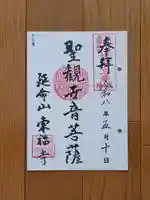 奉拝
令和八年五月十日
聖観世音菩薩
延命山東福寺